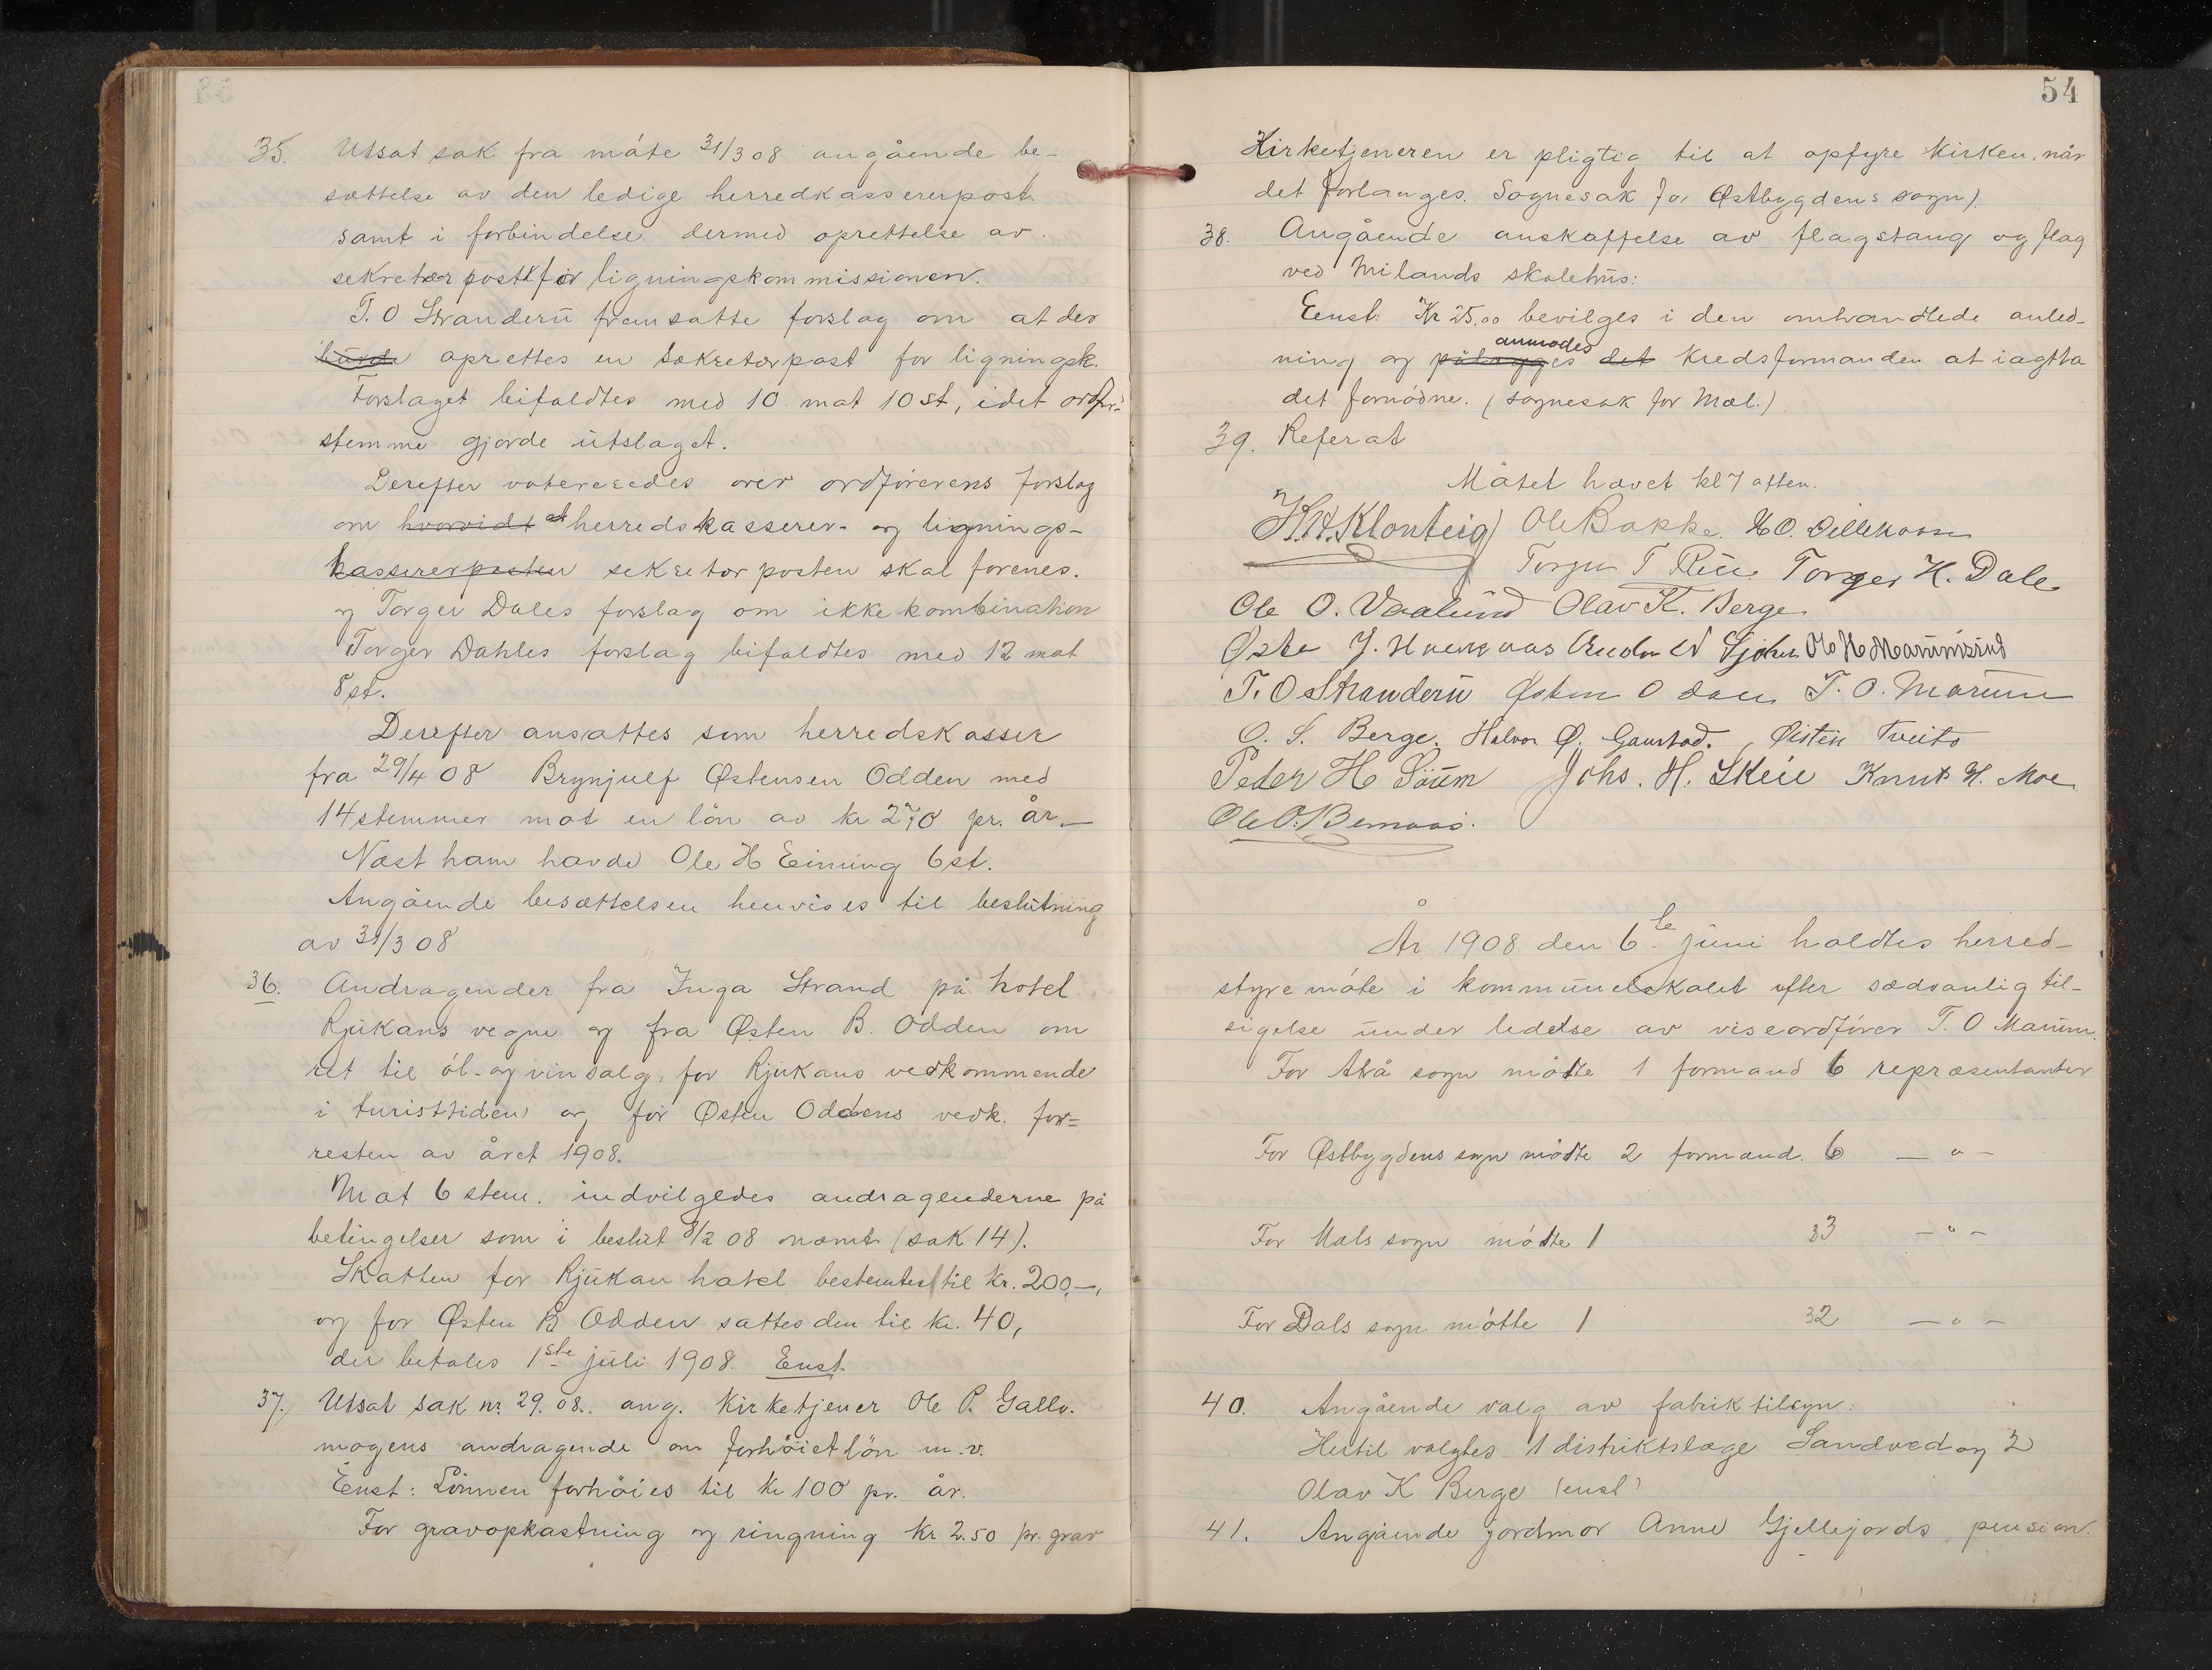 35. Utsat sak fra måte 31/3 08 angående be-
sættelse av den ledige herredkassererpost.
samt i forbindelse dermed oprettelse av
sekretærpost for ligningskommissionen.
T. O Stranderu fremsatte forslag om at der
burde oprettes en sekretærpost for ligningsk.
Forslaget bifaldtes med 10 mot 10 st, idet ordfr's
stemme gjorde utslaget.
Derefter votereredes over ordførerens forslag
om hvorvidt at herredskasserer- og lignings-
kassererposten sekretærposten skal forenes.
og Torger Dales forslag om ikke kombination
Torger Dahles forslag bifaldtes med 12 mot
8 st.
Derefter ansattes som herredskasser
fra 29/4 08 Brynjulf Østensen Odden med
14 stemmer mot en løn av kr 270 pr. år.—
Næst ham havde Ole H Einung 6 st.
Angående besættelsen henvises til beslutning
av 31/3 08
36. Andragender fra Inga Strand på hotel
Rjukans vegne og fra Østen B. Odden om
ret til øl- og vinsalg, for Rjukans vedkommende
i turisttiden og for Østen Oddens vedk. for=
resten av året 1908.
Mot 6 stem. indvilgedes andragenderne på
betingelser som i beslut 8/2 08 nævnt (sak 14).
Skatten for Rjukan hotel bestemtes til kr. 200,—,
og for Østen B Odden sattes den til kr. 40,
der betales 1ste juli 1908. Enst.
37. Utsat sak nr. 29. 08. ang. Kirketjener Ole P. Gallo-
mogens andragende om forhøiet løn m.v.
Enst: Lønnen forhøies til kr 100 pr. år.
For gravopkastning og ringning kr 2.50 pr. grav
54
Kirketjeneren er pligtig til at opfyre kirken, når
det forlanges. Sognesak for Østbygdens sogn).
38. Angående anskaffelse av flagstang og flag
ved Milands skolehus:
Eenst: Kr 25.00 bevilges i den omhandlede anled-
anmodes
ning og pålægges det kredsformanden at iagtta
det fornødne. (sognesak for Mæl.)
39. Referat
Måtet hævet kl 7 aften.
H. H. Klonteig Ole Bakke. H O.
Torger H. Dale
Ole O. Vaalund Olav K. Berge
J. Ole H Marumsrud
T. O Stranderu Østen O T. O. Marum
O. S. Berge. Halvor Ø. Gaustad. Øistein Tveito
Peter H Søum Johs. H. Skeie Knut H. Moe
Ole O. Bernaas.
År 1908 den 6te juni holdtes herred-
styremåte i kommunelokalet efter sædvanlig til-
sigelse under ledelse av viseordfører T. O Marum.
For Atrå sogn møtte 1 formand 6 repræsentanter
For Østbygdens sogn møtte 2 formænd. 6 — " —
For Mæls sogn møtte 1 33 — " —
For Dals sogn møtte 1 32 — " —
40. Angående valg av fabriktilsyn:
Hertil valgtes 1 distriktslæge Sandved og 2
Olav K Berge (enst)
41. Angående jordmor Anne Gjellejords pension.